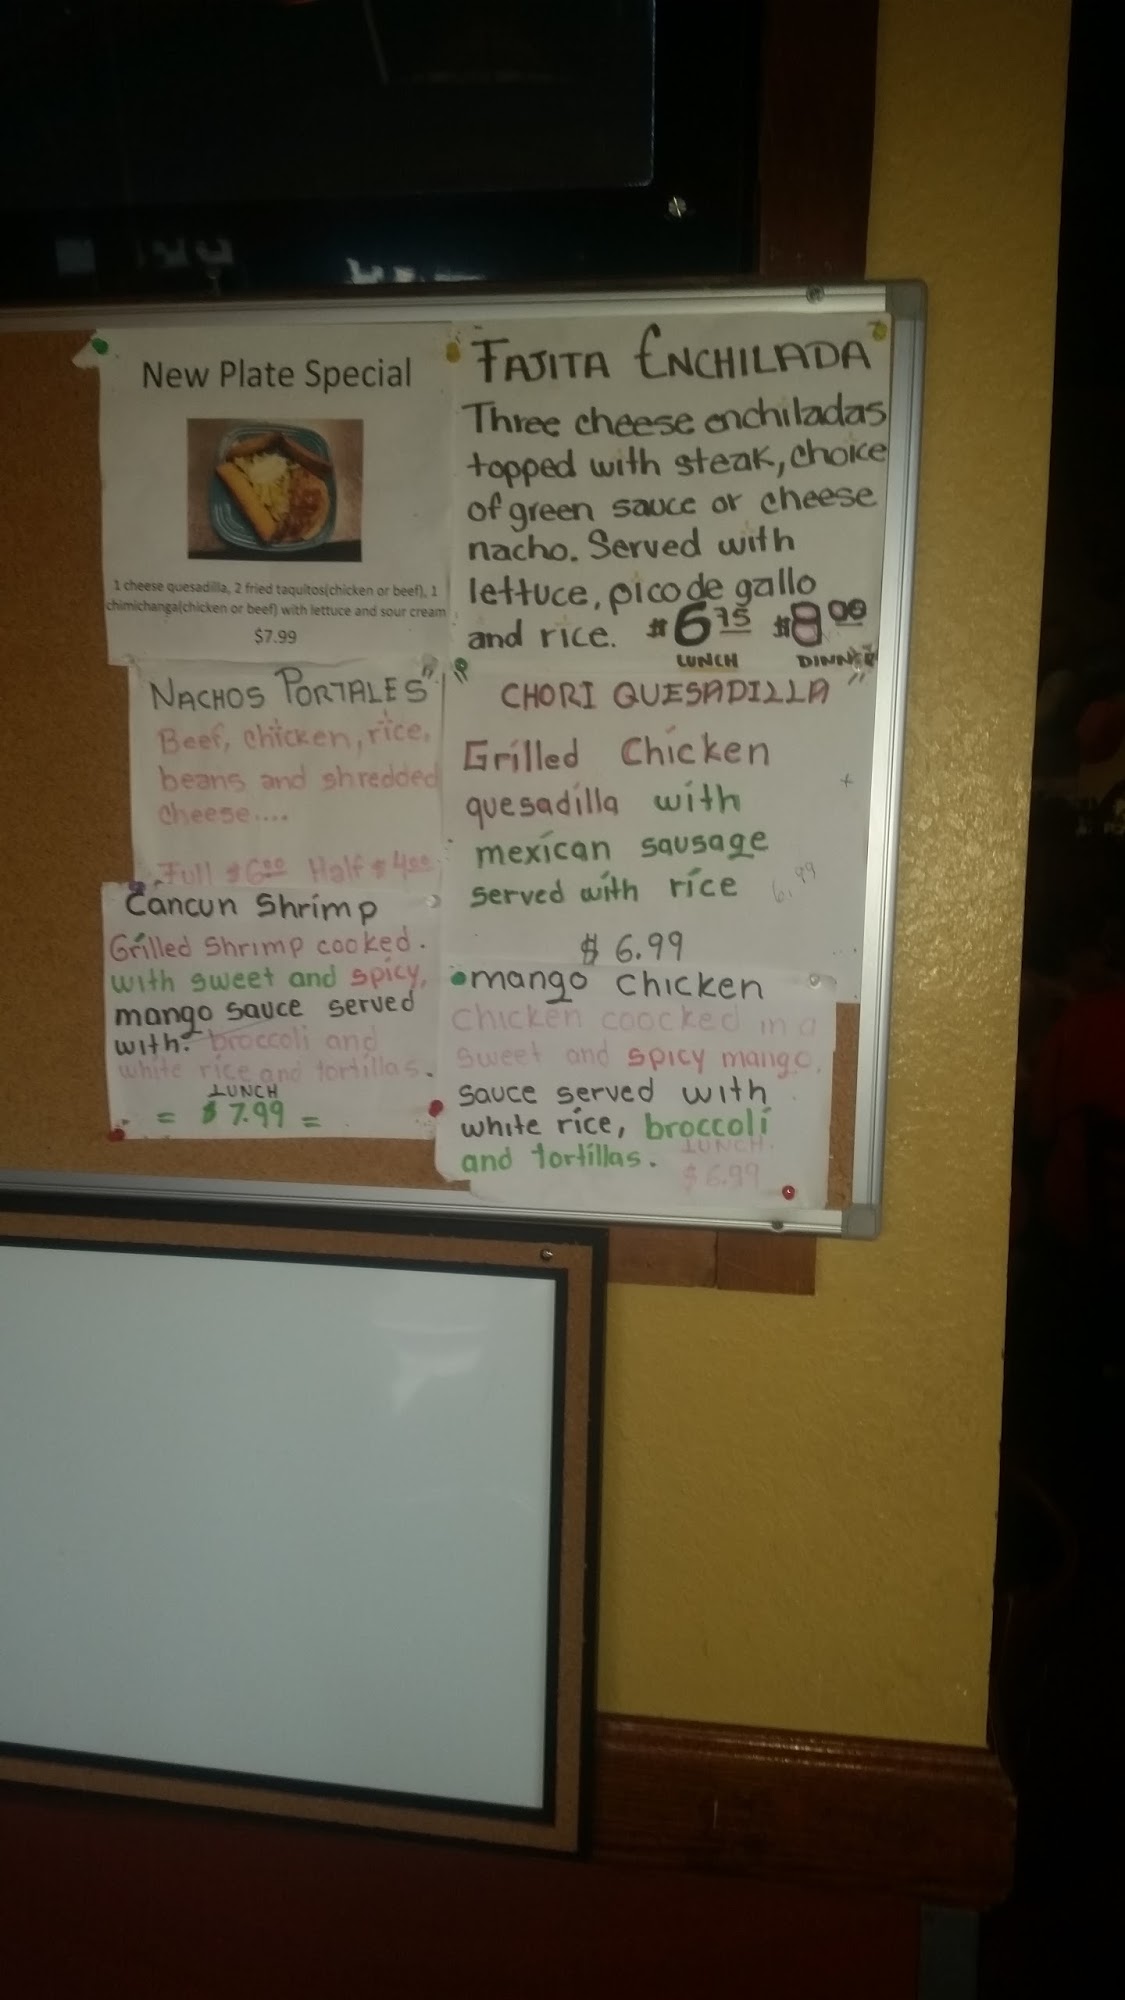 New Plate Special
1 cheese quesadilla, 2 fried taquitos(chicken or beef), 1
chimichanga(chicken or beef) with lettuce and sour cream
$7.99
"FAJITA ENCHILADA"
Three cheese enchiladas
topped with steak, choice
of green sauce or cheese
nacho. Served with
lettuce, pico de gallo
and rice. $6.75 $8.00
LUNCH DINNER
NACHOS PORTALES"
Beef, chicken, rice,
beans and shredded
cheese....
Full $6.00 Half $4.00
"CHORI QUESADILLA"
Grilled Chicken
quesadilla with
mexican sausage
served with rice
6.99
$6.99
Cancun Shrimp
Grilled Shrimp cooked.
with sweet and spicy,
mango sauce served
with: broccoli and
white rice and tortillas.
LUNCH
= $7.99 =
mango chicken
chicken coocked in a
sweet and spicy mango,
sauce served with
white rice, broccoli
and tortillas. LUNCH.
$6.99